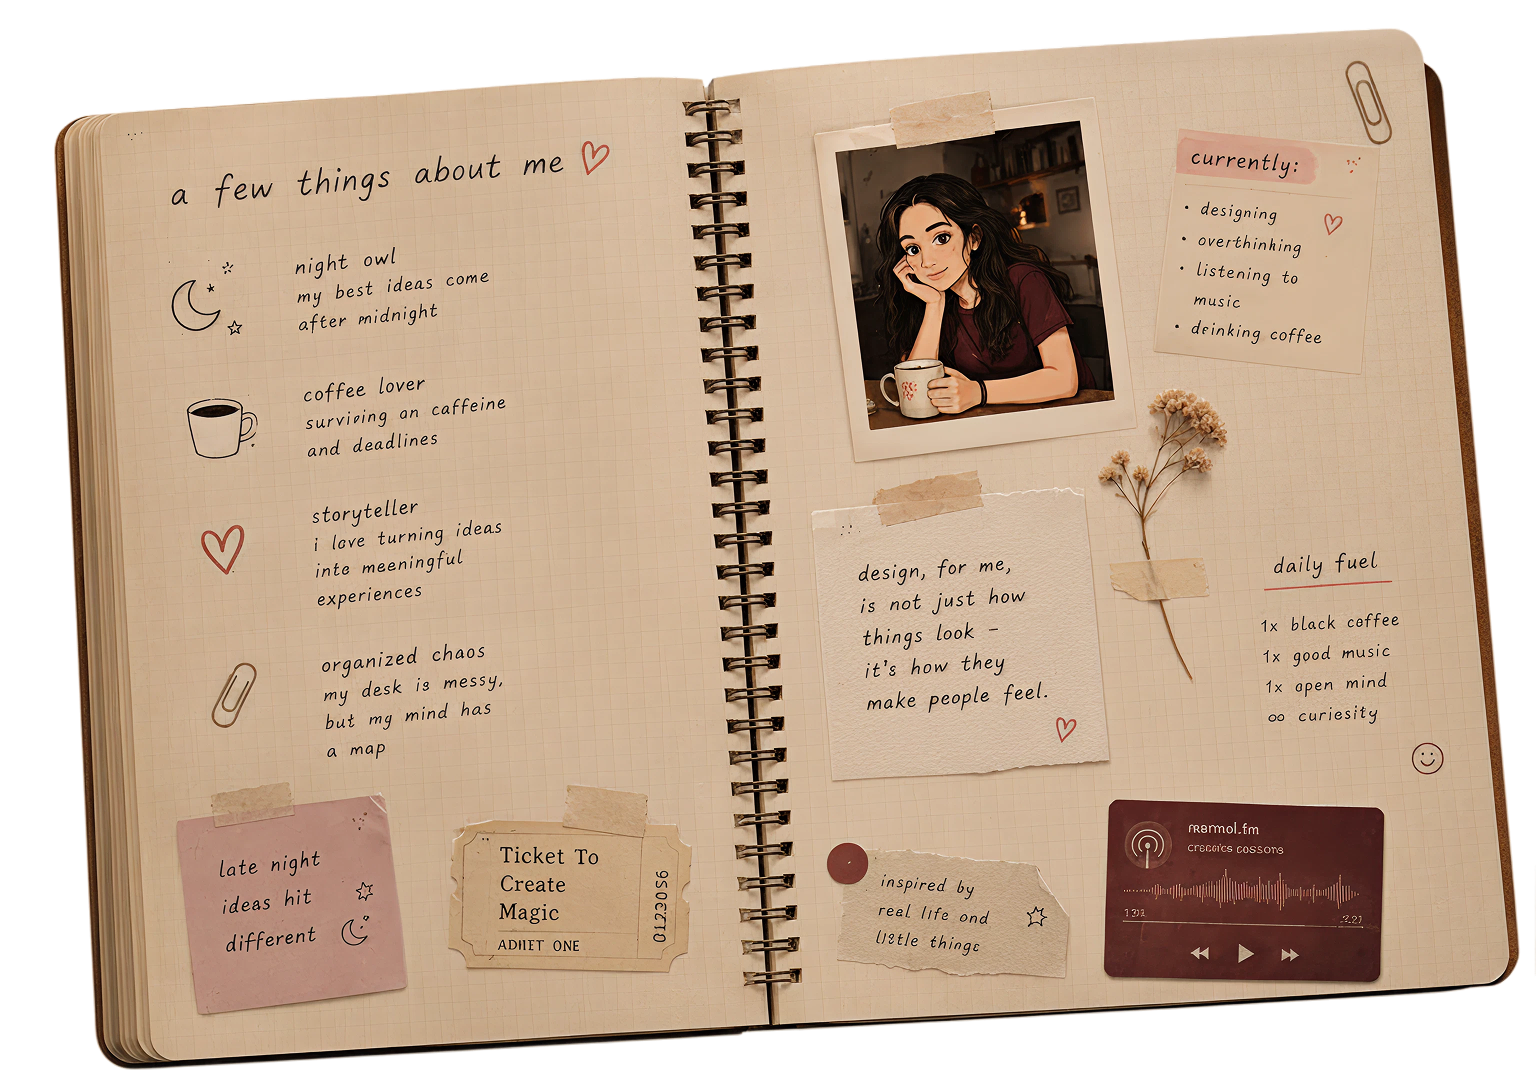 a few things about me
night owl
my best ideas come
after midnight
coffee lover
surviving on caffeine
and deadlines
storyteller
i love turning ideas
into meeningful
experiences
organized chaos
my desk is messy,
but my mind has
a map
late night
ideas hit
different
Ticket To
Create
Magic
ADMIT ONE
0123056
currently:
• designing
• overthinking
• listening to
music
• drinking coffee
design, for me,
is not just how
things look –
it's how they
make people feel.
daily fuel
1x black coffee
1x good music
1x open mind
∞ curiesity
inspired by
real life and
little things
.fm